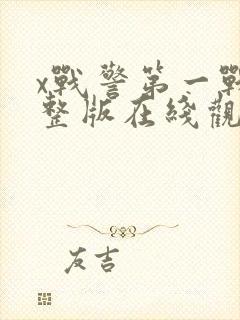 x戰警第一戰
整版在綫觀
友吉